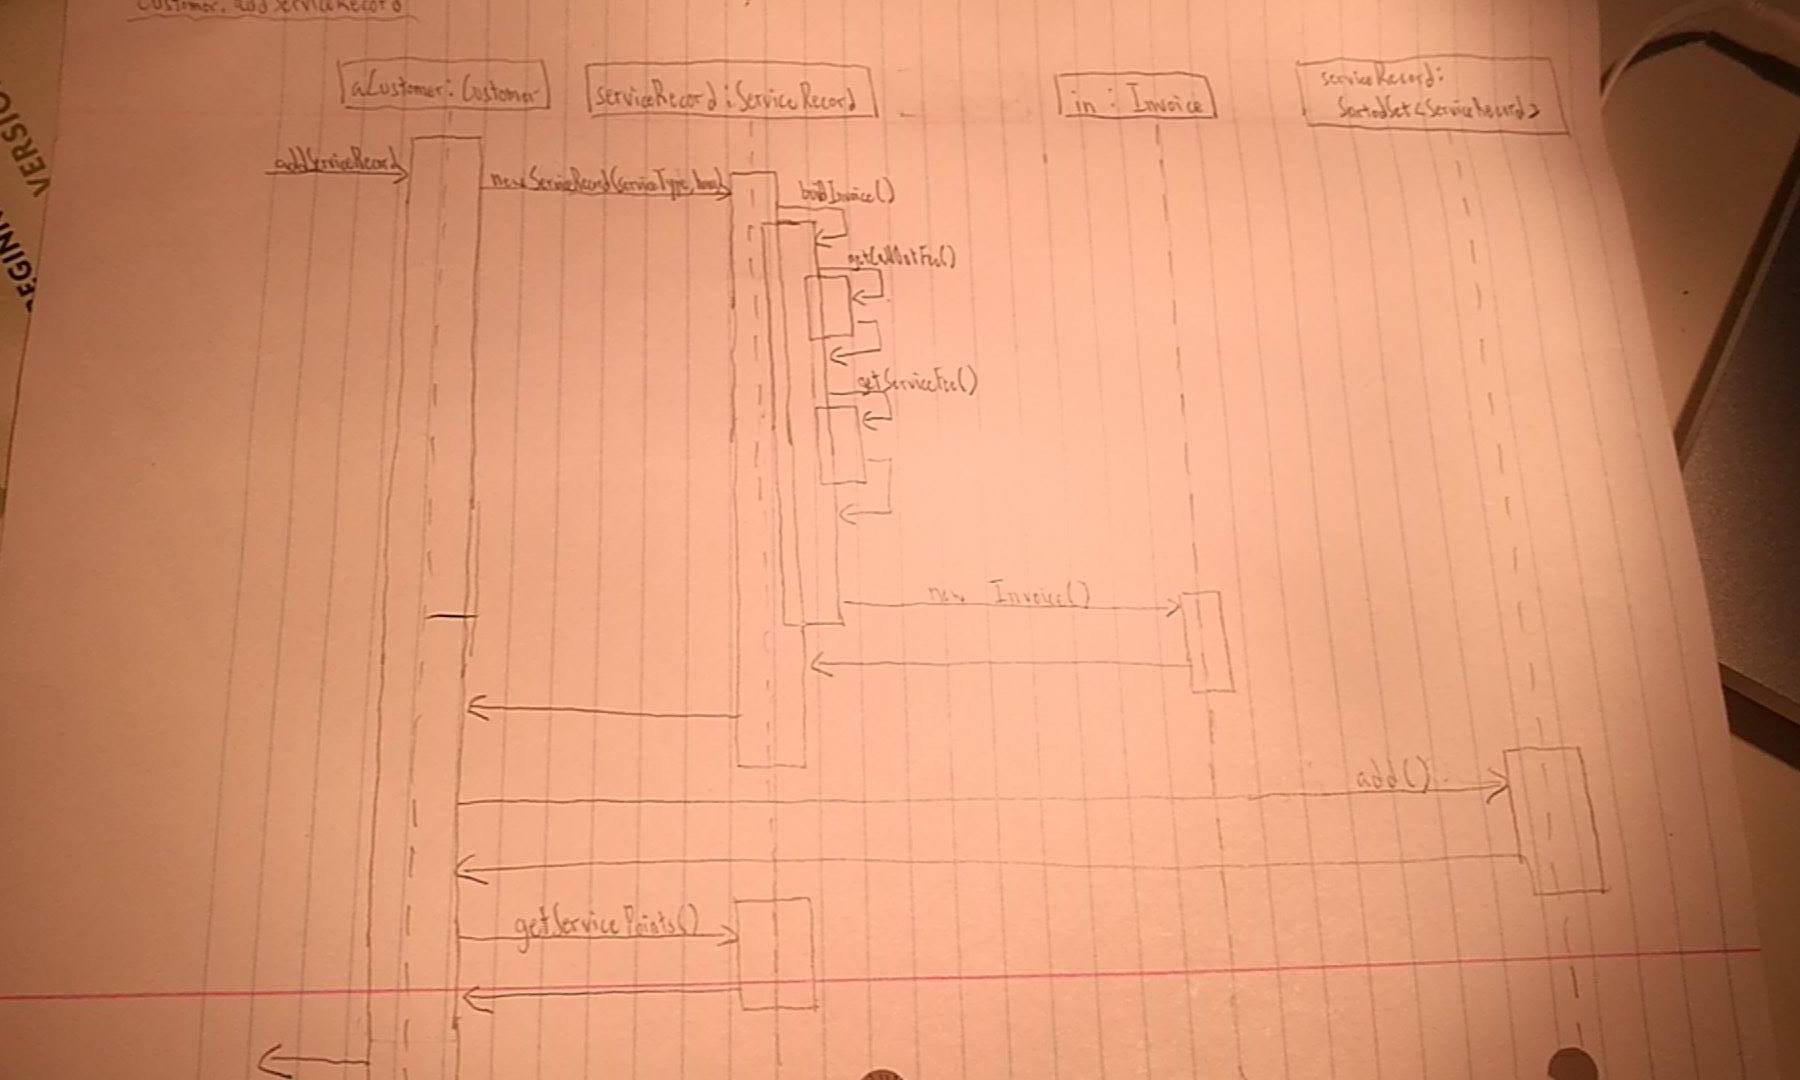 Customer.addServiceRecord
aCustomer:Customer
serviceRecord:ServiceRecord
in : Invoice
serviceRecord:
SortedSet<ServiceRecord>
addServiceRecord
new ServiceRecord(serviceType,
buildInvoice()
getCallOutFee()
getServiceFee()
new Invoice()
add()
getServicePoints()
VERSIO
BEGINN